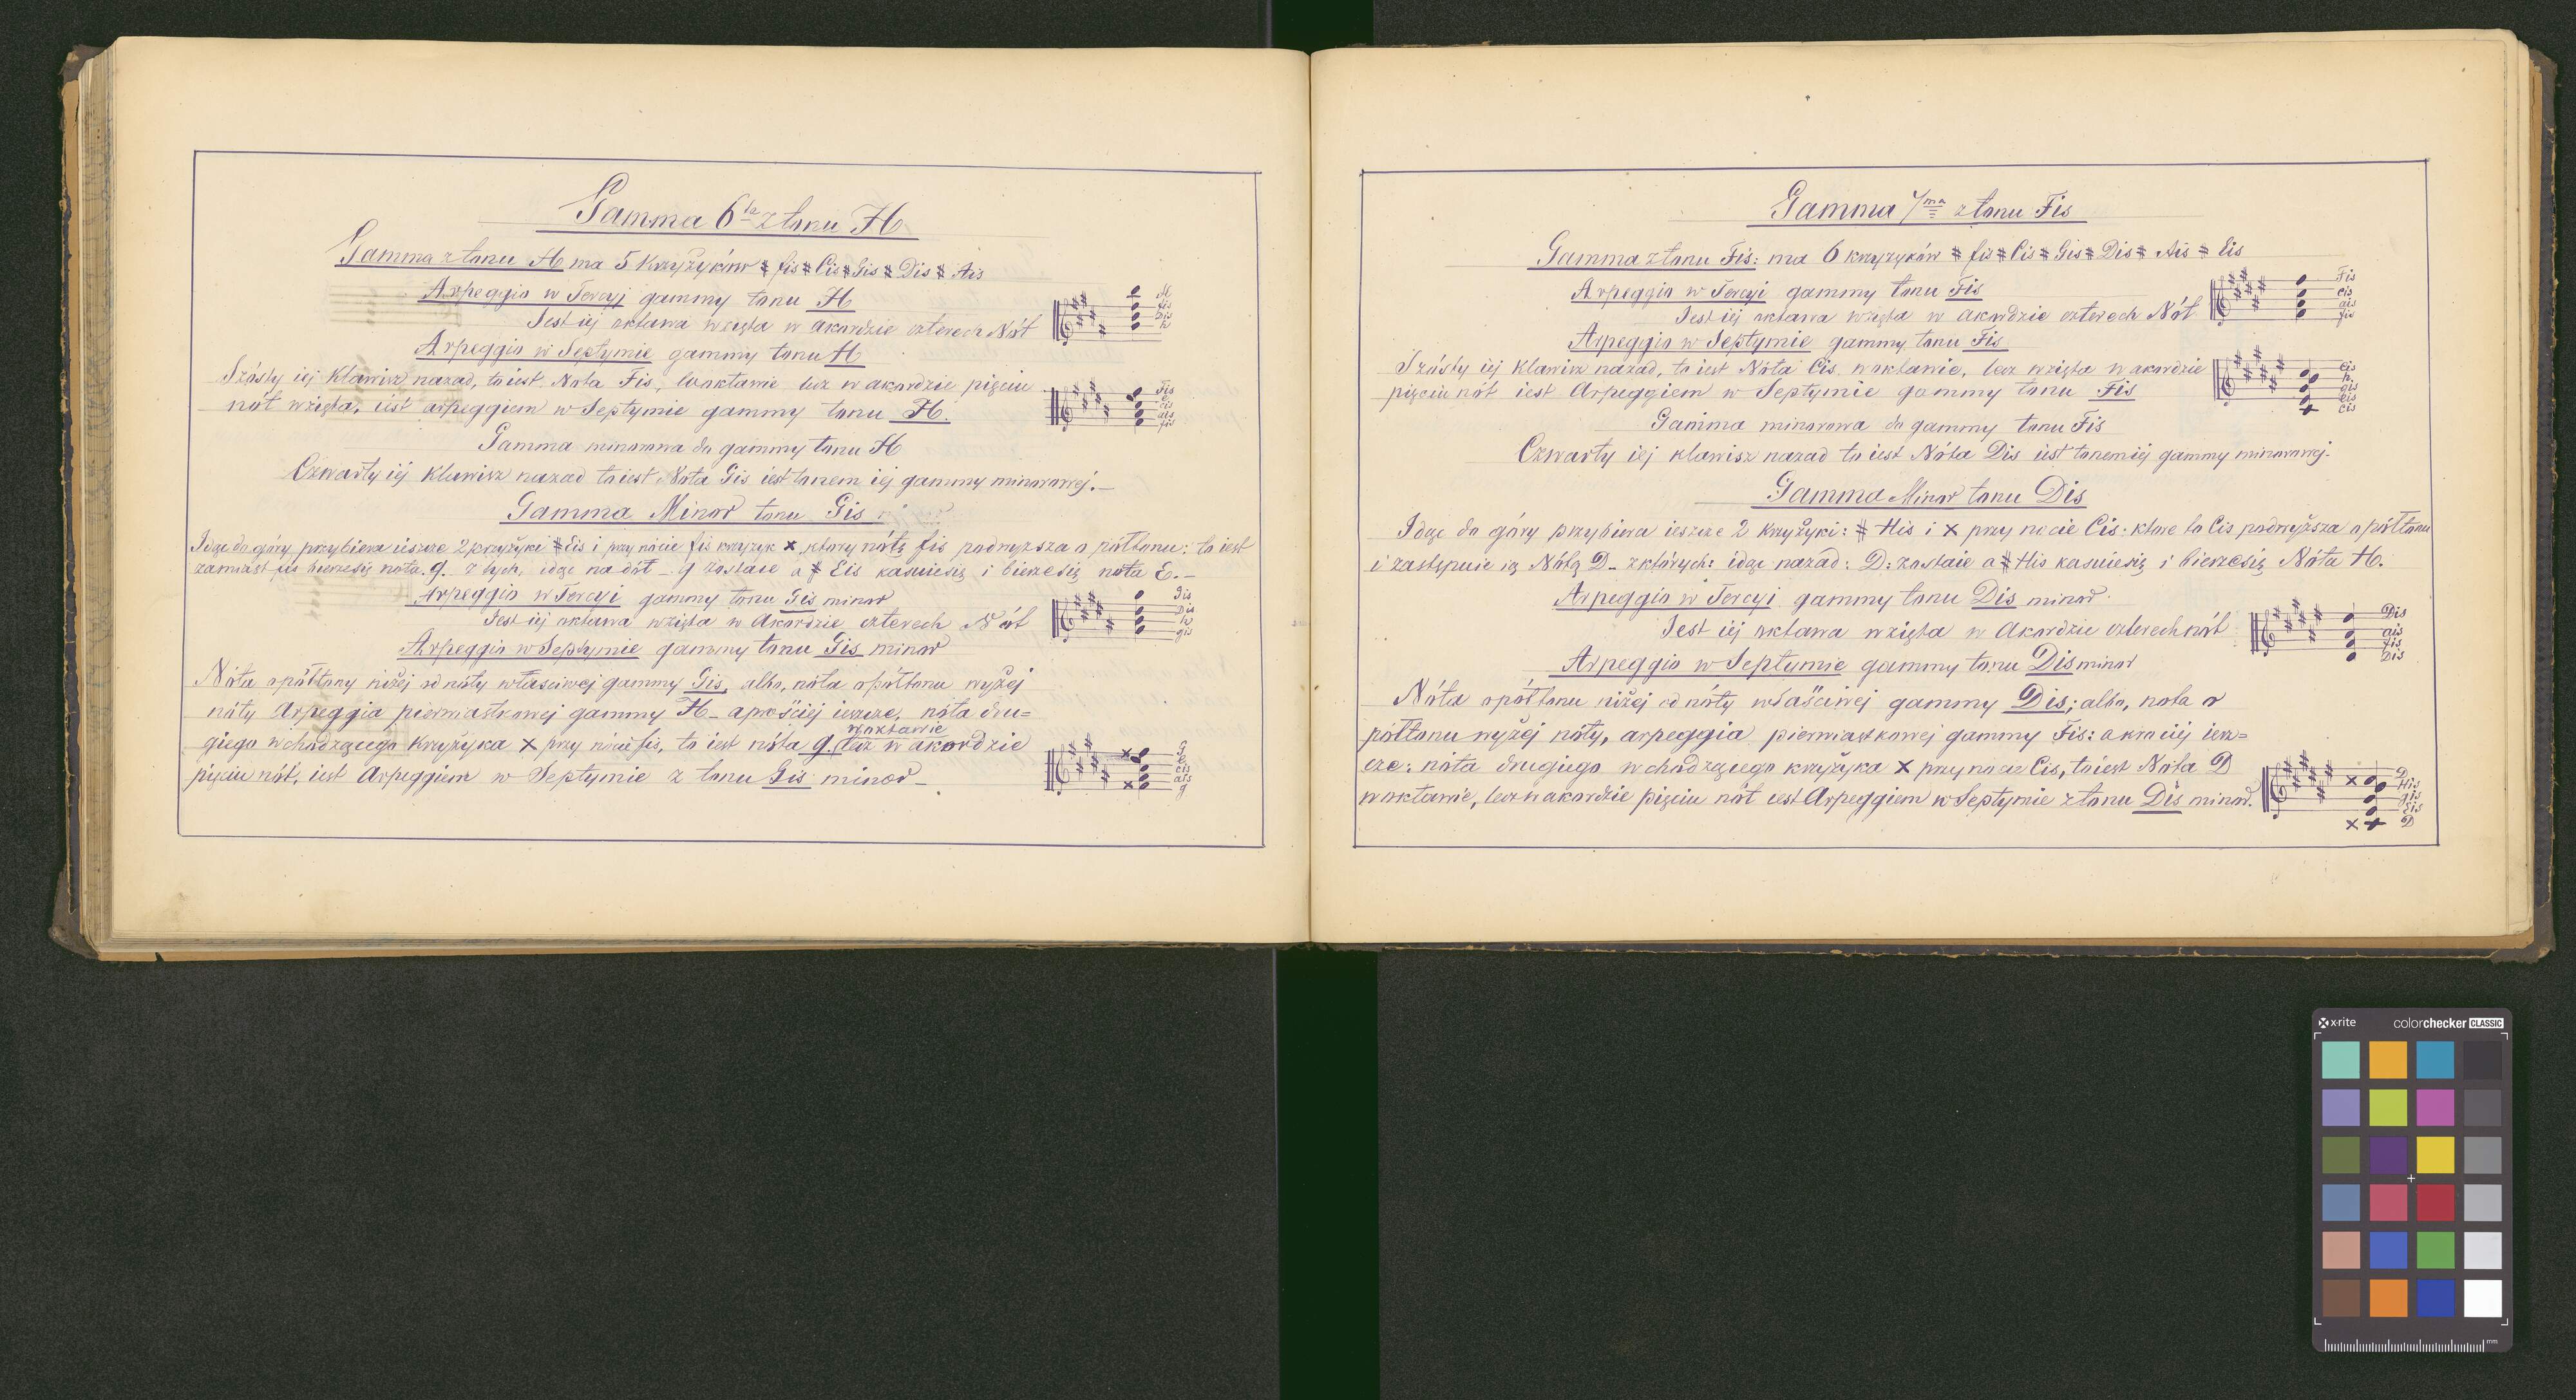 Gamma 6ta z tonu H
Gamma z tonu H ma 5 Krzyżyków # fis # Cis # Gis # Dis # Ais
Arpeggio w Tercyj gammy tonu H
Jest iéj oktawa wzięta w akordzie czterech Nót
H
fis
Dis
h
Arpeggio w Septymie gammy tonu H
Szósty iéj Klawisz nazad, to iest Nota Fis, w oktawie lecz w akordzie pięciu
nót wzięta, iest arpeggiem w Septymie gammy tonu H.
Fis
e
cis
ais
fis
Gamma minorowa do gammy tonu H
Czwarty iéj Klawisz nazad to iest Nota Gis iest tonem iéj gammy minorowéj.—
Gamma Minor tonu Gis
Idąc do góry przybiera ieszcze 2 krzyżyki # Eis i przy nócie fis krzyżyk x, który nótę fis podwyższa o półtonu: to iest
zamiast fis bierze się nota. g. z tych, idąc na dół – g zostaie a # Eis kasuie się i bierze się nota E.–
Arpeggio w Tercyi gammy tonu Gis minor
Jest iéj oktawa wzięta w Akordzie czterech Nót
Gis
Dis
h
gis
Arpeggio w Septymie gammy tonu Gis minor
Nóta o półtony niżéj od nóty właściwej gammy Gis, albo, nóta o półtonu wyżéj
nóty Arpeggia pierwiastkowej gammy H – a prościéj ieszcze, nóta dru=
w oktawie
giego wchodzącego Krzyżyka x przy nócie fis, to iest nóta g. lecz w akordzie
pięciu nót, iest Arpeggiem w Septymie z tonu Gis minor –
g
e
cis
ais
g
Gamma 7ma z tonu Fis
Gamma z tonu Fis: ma 6 krzyżyków # fis # Cis # Gis # Dis # Ais # Eis
Arpeggio w Tercyi gammy tonu Fis
Jest iéj oktawa wzięta w akordzie czterech Nót
Fis
cis
ais
fis
Arpeggio w Septymie gammy tonu Fis
Szósty iéj klawisz nazad, to iest Nóta Cis w oktawie, lecz wzięta w akordzie
pięciu nót iest Arpeggiem w Septymie gammy tonu Fis
cis
h
gis
eis
cis
Gamma minorowa do gammy tonu Fis
Czwarty iéj klawisz nazad to iest Nóta Dis iest tonem iéj gammy minorowej.
Gamma Minor tonu Dis
Idąc do góry przybiera ieszcze 2 Krzyżyki: # His i x przy nocie Cis: które to Cis podwyższa o półtonu
i zastępuie ią Nótą D – z których: idąc nazad: D: zostaie a # His kasuie się i bierze się Nóta H.
Arpeggio w Tercyi gammy tonu Dis minor
Jest iéj oktawa wzięta w Akordzie czterech nót
Dis
ais
fis
Dis
Arpeggio w Septymie gammy tonu Dis minor
Nóta o półtonu niżéj od nóty właściwej gammy Dis; albo, nota o
półtonu wyżéj nóty, arpeggia pierwiastkowej gammy Fis: a krociéj iesz=
cze: nóta drugiego wchodzącego krzyżyka x przy nocie Cis, to iest Nóta D
w oktawie, lecz w akordzie pięciu nót iest Arpeggiem w Septymie z tonu Dis minor.
D
His
gis
Eis
D
x-rite
colorchecker CLASSIC
mm